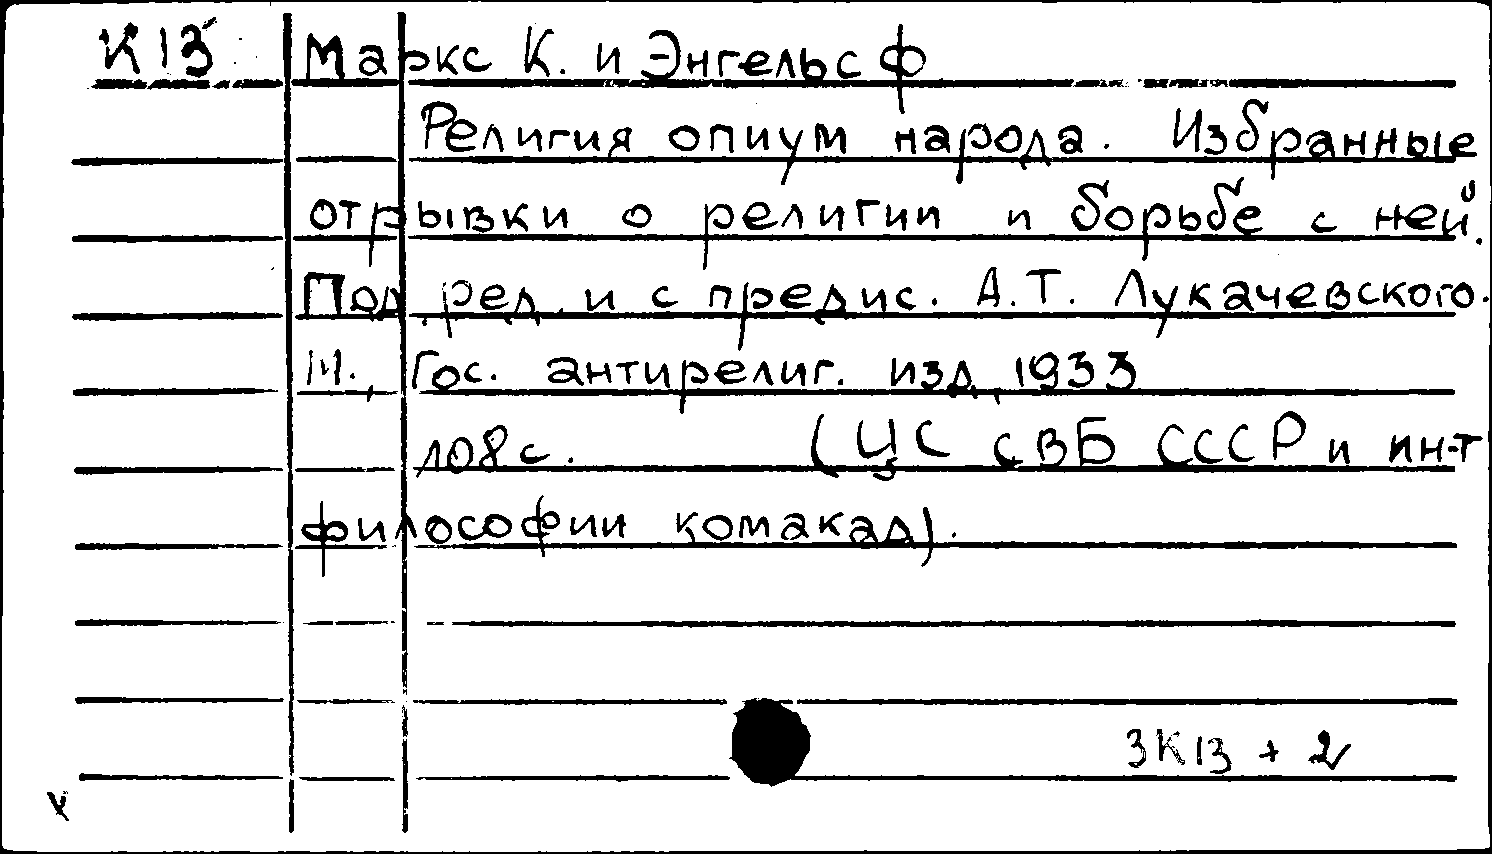 К13 Маркс К. и Энгельс Ф
Религия опиум народа. Избранные
отрывки о религии и борьбе с ней.
Под ред. и с предис. А.Т. Лукачевского.
М., Гос. антирелиг. изд, 1933
108 с. (ЦС СВБ СССР и ин-т
философии комакад).
3К13 + 2